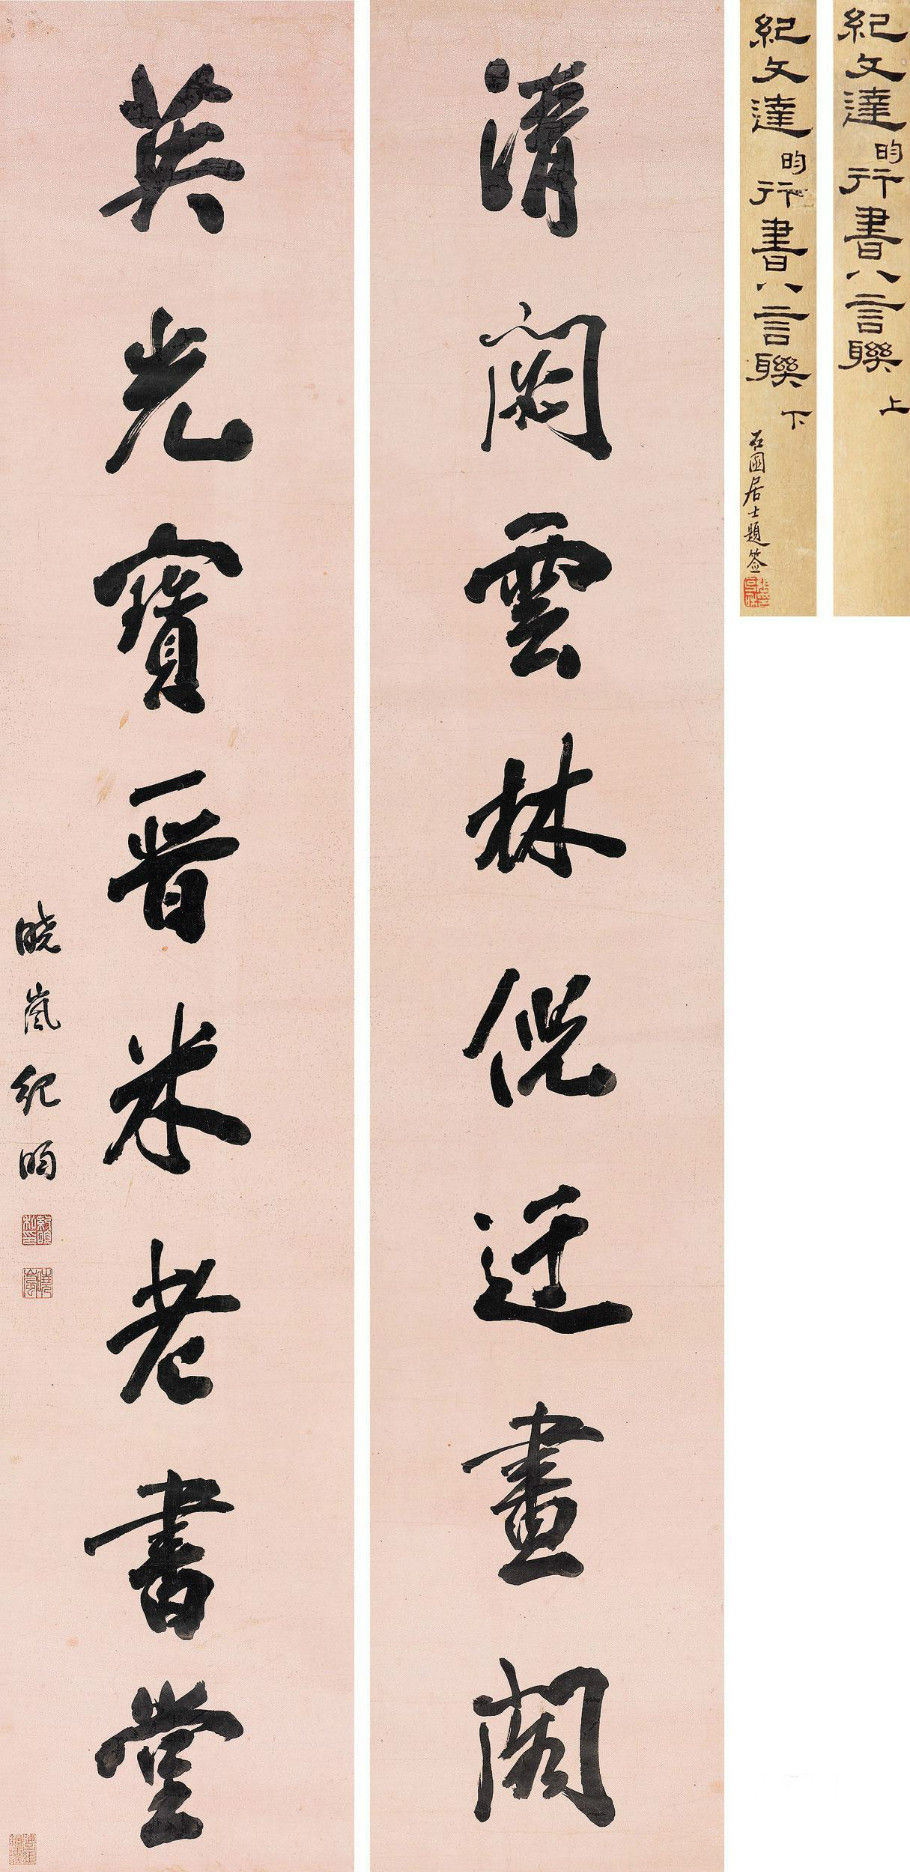 紀文達昀行書八言聯 上
紀文達昀行書八言聯 下
石園居士題签
清閟雲林倪迂畫閣
英光寶晉米老書堂
曉嵐紀昀